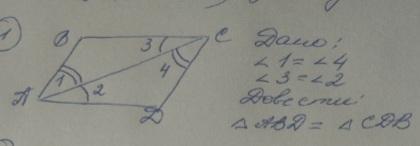 1
B
C
3
4
1
2
A
D
Дано:
∠1=∠4
∠3=∠2
Довести:
△ABD = △CDB